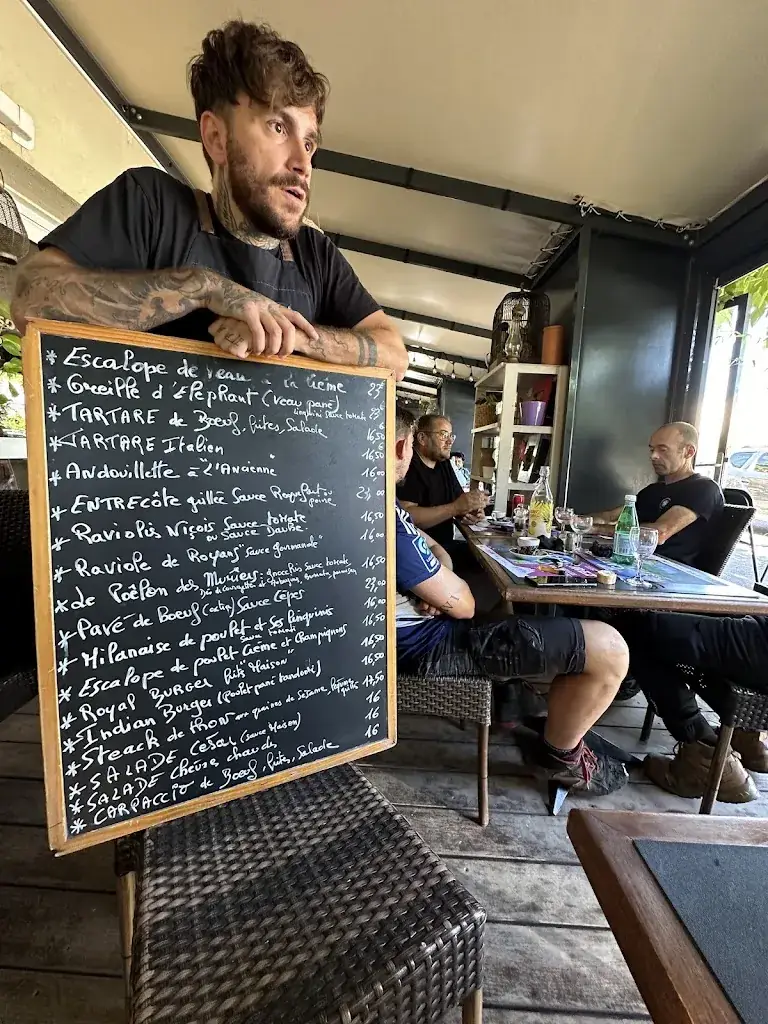 * Escalope de veau à la Crème 23€
* Oreille d'Elephant (veau pané) 23€
linguini sauce tomate
* TARTARE de Bœuf, frites, Salade 16,50
* TARTARE Italien 16,50
* Andouillette à "L'Ancienne" 16,00
* ENTRECÔTE grillée Sauce Roquefort ou poivre 00
* Raviolis Niçois Sauce tomate 16,50
ou Sauce Daube
* Raviole de Royans "Sauce gourmande" 16,00
* Le Poêlon des Mûriers: gnocchis Sauce tomate 16,50
* Pavé de Boeuf Sauce Cèpes 23,00
* Milanaise de poulet et Ses linguinis 16,00
Sauce tomate
* Escalope de poulet Crème et Champignons 16,50
* Royal BURGER frites "Maison" 16,50
* Indian Burger (Poulet pané tandoori) 16,50
* Steack de thon aux graines de Sésame, légumes grillés 17,50
* SALADE César (sauce Maison) 16
* SALADE Chèvre chaud 16
* CARPACCIO de Boeuf, frites, Salade 16